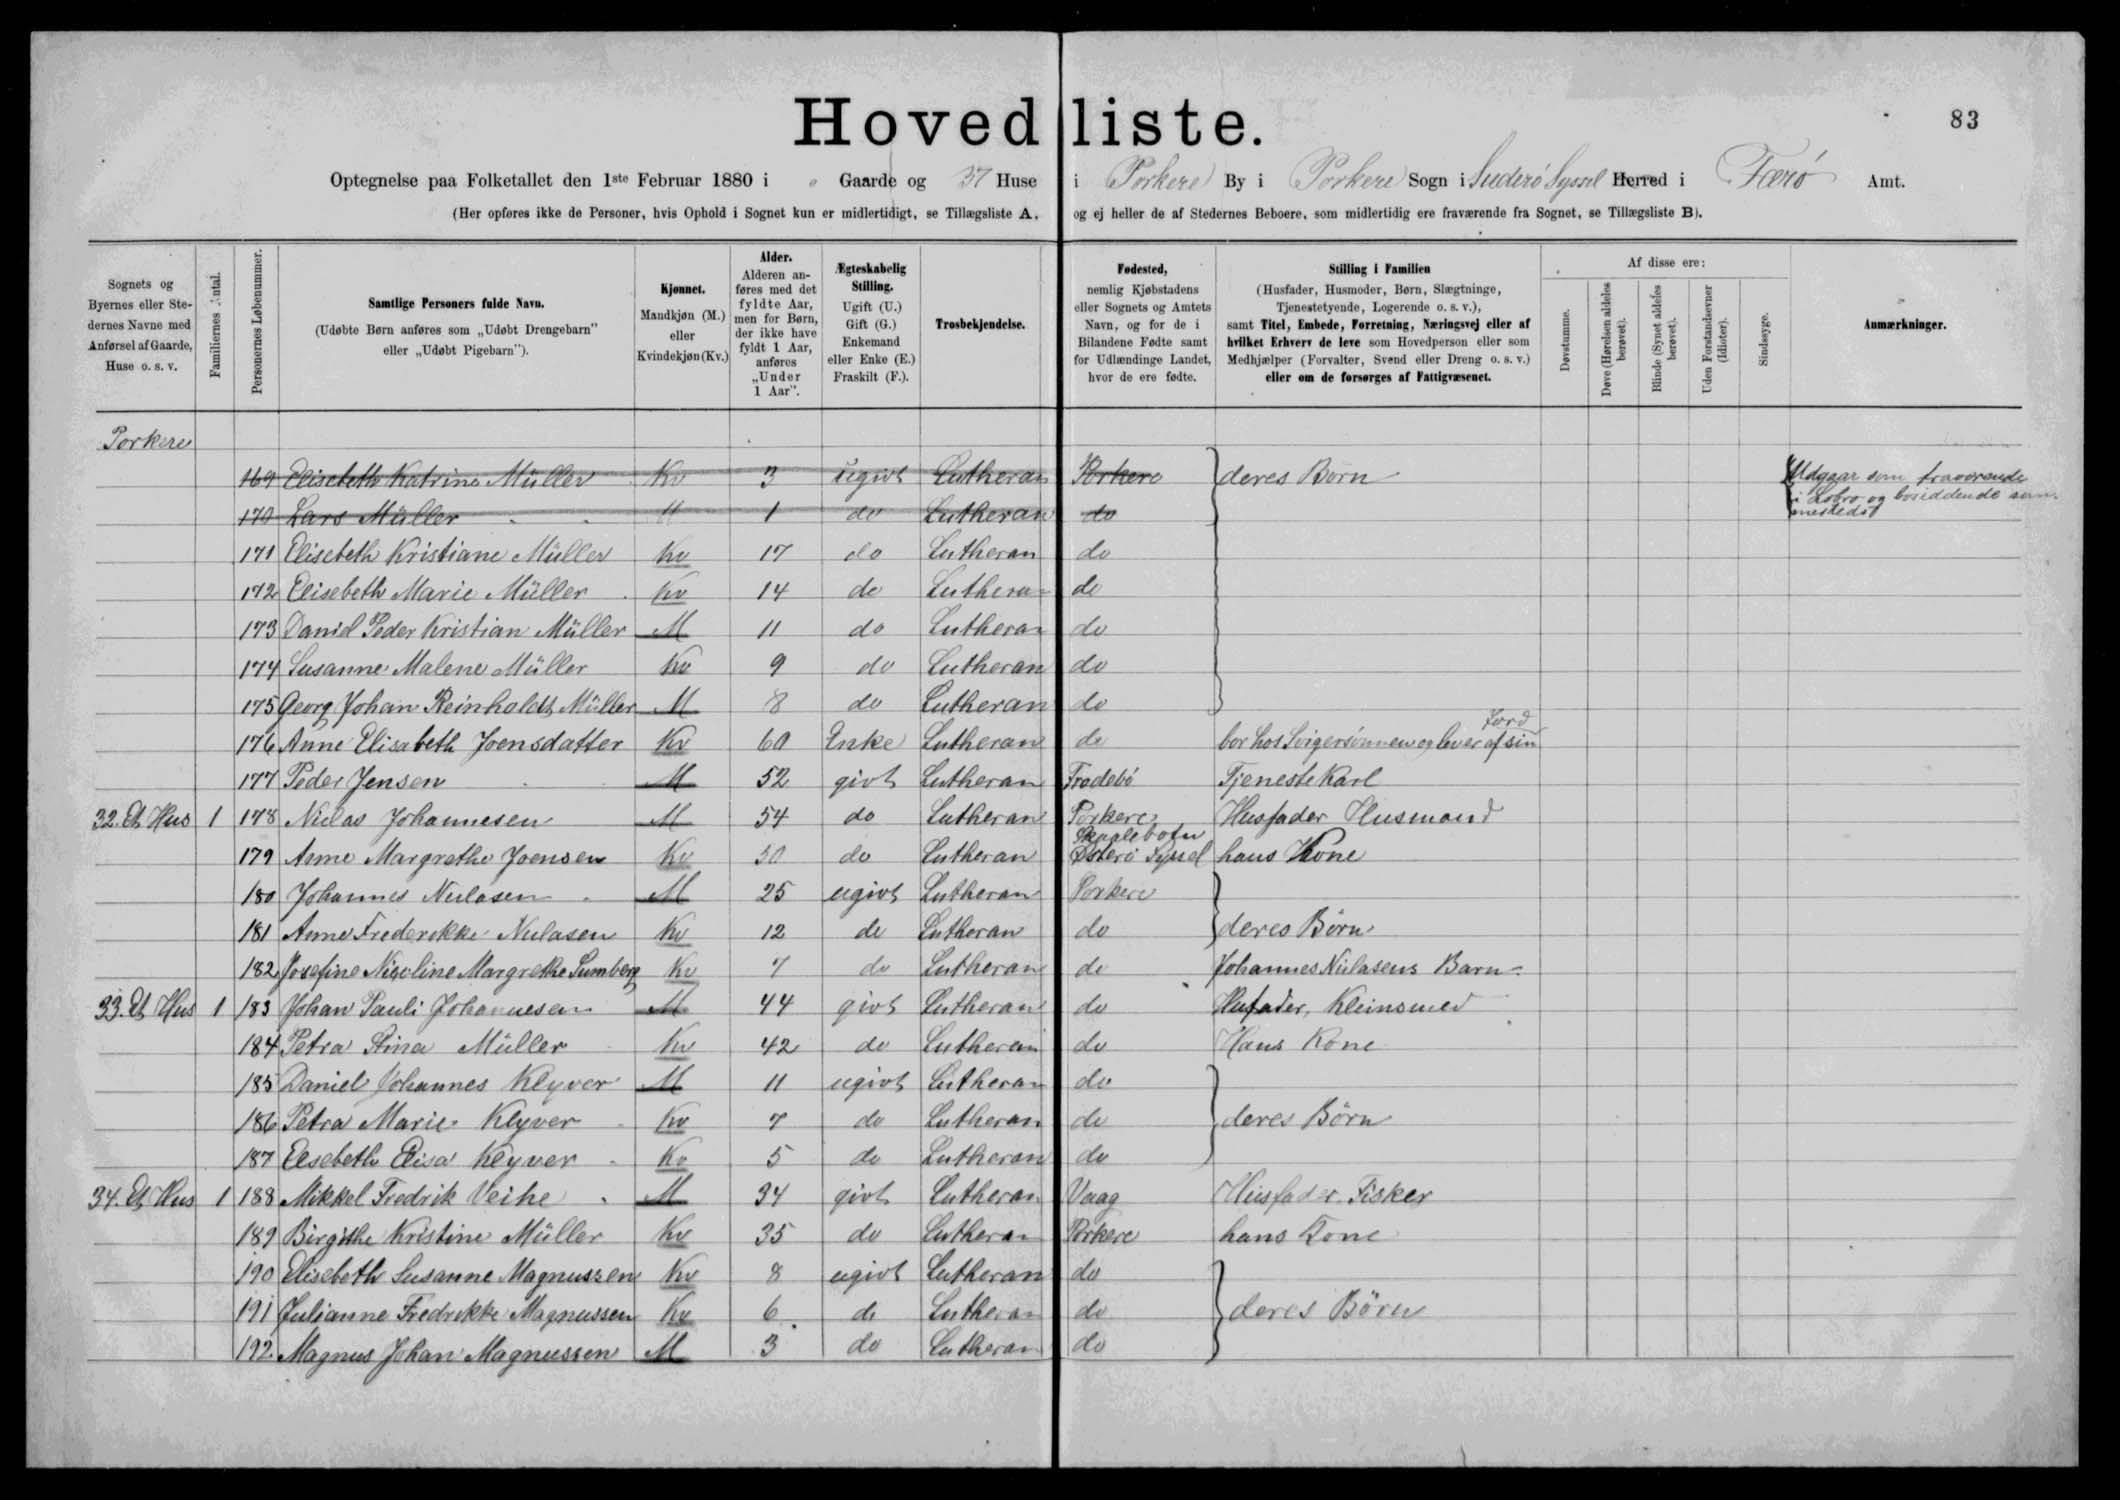 Hovedliste.
83
Optegnelse paa Folketallet den 1ste Februar 1880 i " Gaarde og 37 Huse i Porkere By i Porkere Sogn i Suderø Syssel Herred i Færø Amt.
(Her opføres ikke de Personer, hvis Ophold i Sognet kun er midlertidigt, se Tillægsliste A, og ej heller de af Stedernes Beboere, som midlertidig ere fraværende fra Sognet, se Tillægsliste B).
Sognets og Byernes eller Stedernes Navne med Anførsel af Gaarde, Huse o. s. v.
Familiernes Antal.
Personernes Løbenummer.
Samtlige Personers fulde Navn.
(Udøbte Børn anføres som „Udøbt Drengebarn" eller „Udøbt Pigebarn").
Kjønnet.
Mandkjøn (M.) eller Kvindekjøn (Kv.)
Alder.
Alderen anføres med det fyldte Aar, men for Børn, der ikke have fyldt 1 Aar, anføres „Under 1 Aar".
Ægteskabelig Stilling.
Ugift (U.) Gift (G.) Enkemand eller Enke (E.) Fraskilt (F.).
Trosbekjendelse.
Fødested,
nemlig Kjøbstadens eller Sognets og Amtets Navn, og for de i Bilandene Fødte samt for Udlændinge Landet, hvor de ere fødte.
Stilling i Familien
(Husfader, Husmoder, Børn, Slægtninge, Tjenestetyende, Logerende o. s. v.),
samt Titel, Embede, Forretning, Næringsvej eller af hvilket Erhverv de leve som Hovedperson eller som Medhjælper (Forvalter, Svend eller Dreng o. s. v.) eller om de forsørges af Fattigvæsenet.
Af disse ere:
Døvstumme.
Døve (Hørelsen aldeles berøvet).
Blinde (Synet aldeles berøvet).
Uden Forstandsevner (Idioter).
Sindssyge.
Anmærkninger.
Porkere
169 Elisebeth Katrine Müller Kv 3 ugivt Lutheran Porkere deres Børn Udgaar som fraværende
170 Lars Müller M 1 do Lutheran do i Lobro og bosiddende sammesteds
171 Elisebeth Kristiane Müller Kv 17 do Lutheran do
172 Elisebeth Marie Müller Kv 14 do Lutheran do
173 Daniel Peder Kristian Müller M 11 do Lutheran do
174 Susanne Malene Müller Kv 9 do Lutheran do
175 Georg Johan Reinholdt Müller M 8 do Lutheran do
176 Anne Elisabeth Joensdatter Kv 60 Enke Lutheran do bor hos Svigersønnen og lever af sin Jord
177 Peder Jensen M 52 givt Lutheran Frodebø Tjenestekarl
32. Et Hus 1 178 Niclas Johannesen M 54 do Lutheran Porkere Husfader Husmand
179 Anne Margrethe Joensen Kv 50 do Lutheran Skaalebotn Østerø Syssel hans Kone
180 Johannes Niclasen M 25 ugivt Lutheran Porkere
181 Anne Frederikke Niclasen Kv 12 do Lutheran do deres Børn
182 Josefine Nicoline Margrethe Sumberg Kv 7 do Lutheran do Johannes Niclasens Barn
33. Et Hus 1 183 Johan Pauli Johannesen M 44 givt Lutheran do Husfader, Kleinsmed
184 Petra Stina Müller Kv 42 do Lutheran do Hans Kone
185 Daniel Johannes Klyver M 11 ugivt Lutheran do
186 Petra Marie Klyver Kv 7 do Lutheran do deres Børn
187 Elsebeth Elisa Klyver Kv 5 do Lutheran do
34. Et Hus 1 188 Mikkel Fredrik Veihe M 34 givt Lutheran Vaag Husfader Fisker
189 Birgithe Kristine Müller Kv 35 do Lutheran Porkere hans Kone
190 Elisebeth Susanne Magnussen Kv 8 ugivt Lutheran do
191 Julianne Fredrikke Magnussen Kv 6 do Lutheran do deres Børn
192 Magnus Johan Magnussen M 3 do Lutheran do